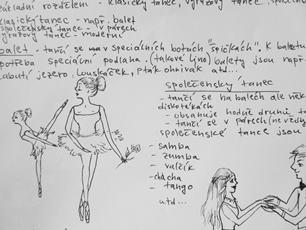 základní rozdělení - klasický tanec, výrazový tanec,
klasický tanec - např. balet
společenský tanec - v párech
výrazový tanec - moderní
balet - tančí se v speciálních botách "špičkách", k baletu
potřeba speciální podlaha. (takové lino) balety jsou např.
labutí jezero, Louskáček, Pták ohnivák atd...
společenský tanec
- tančí se na bálech ale
diskotékách
- obsahuje hodně druhů
- tančí se v párech
společenské tance jsou
- samba
- zumba
- valčík
- čača
- tango
atd...